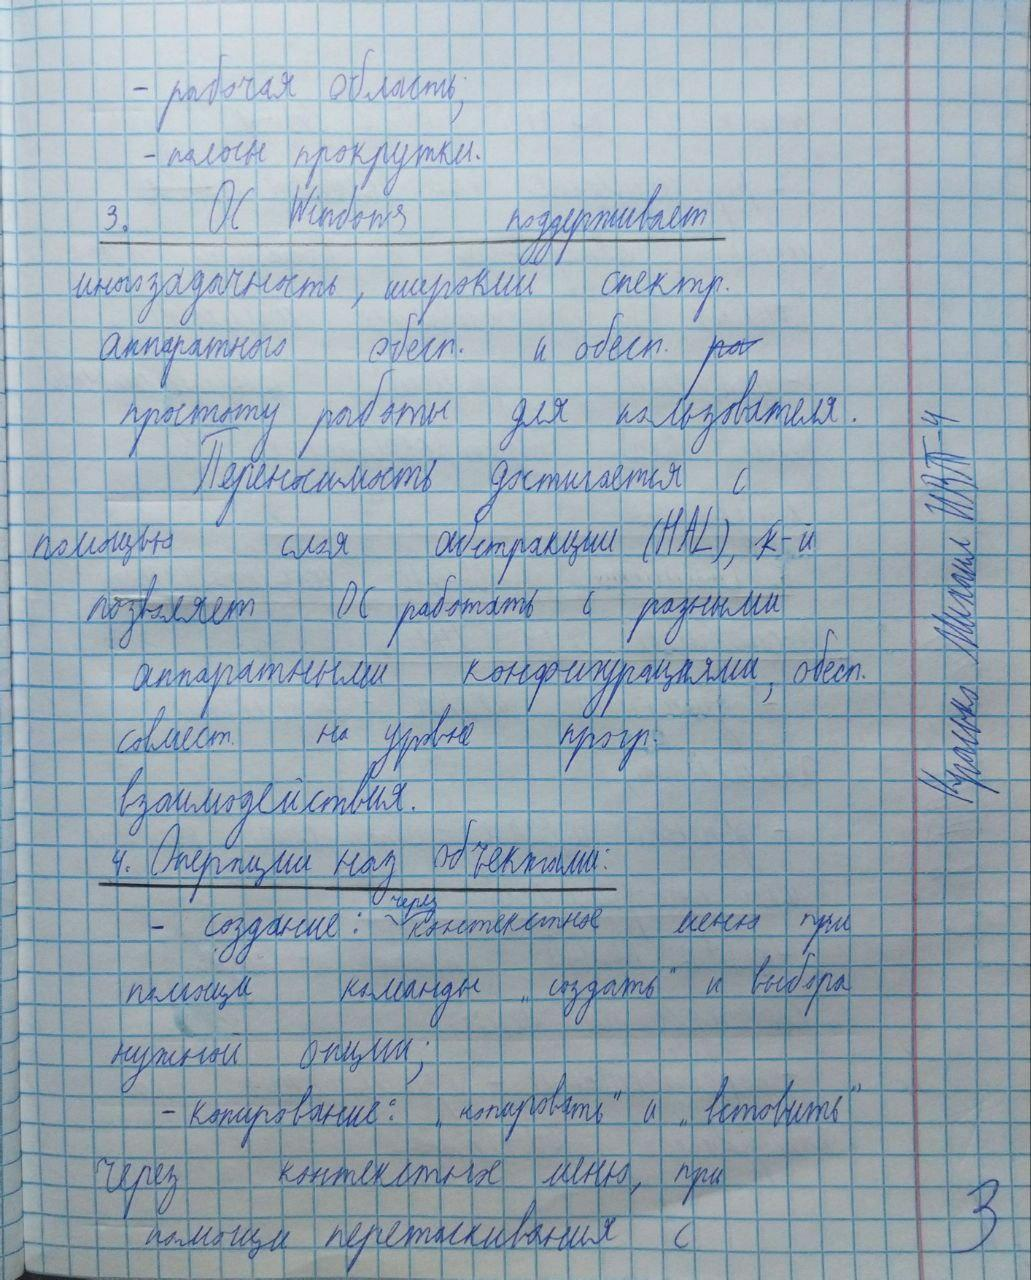 - рабочая область;
- полосы прокрутки.
3. ОС Windows поддерживает
многозадачность, широкий спектр.
аппаратного обесп. и обесп. ра
простоту работы для пользователя.
Переносимость достигается с
помощью слоя абстракции (HAL), к-й
позволяет ОС работать с разными
аппаратными конфигурациями, обесп.
совмест. на уровне прогр.
взаимодействия.
4. Операции над объектами:
- создание: через контекстное меню при
помощи команды „создать" и выбора
нужной опции;
- копирование: „копировать" и „вставить"
через контекстное меню, при
помощи перетаскивания с
Михаил
3